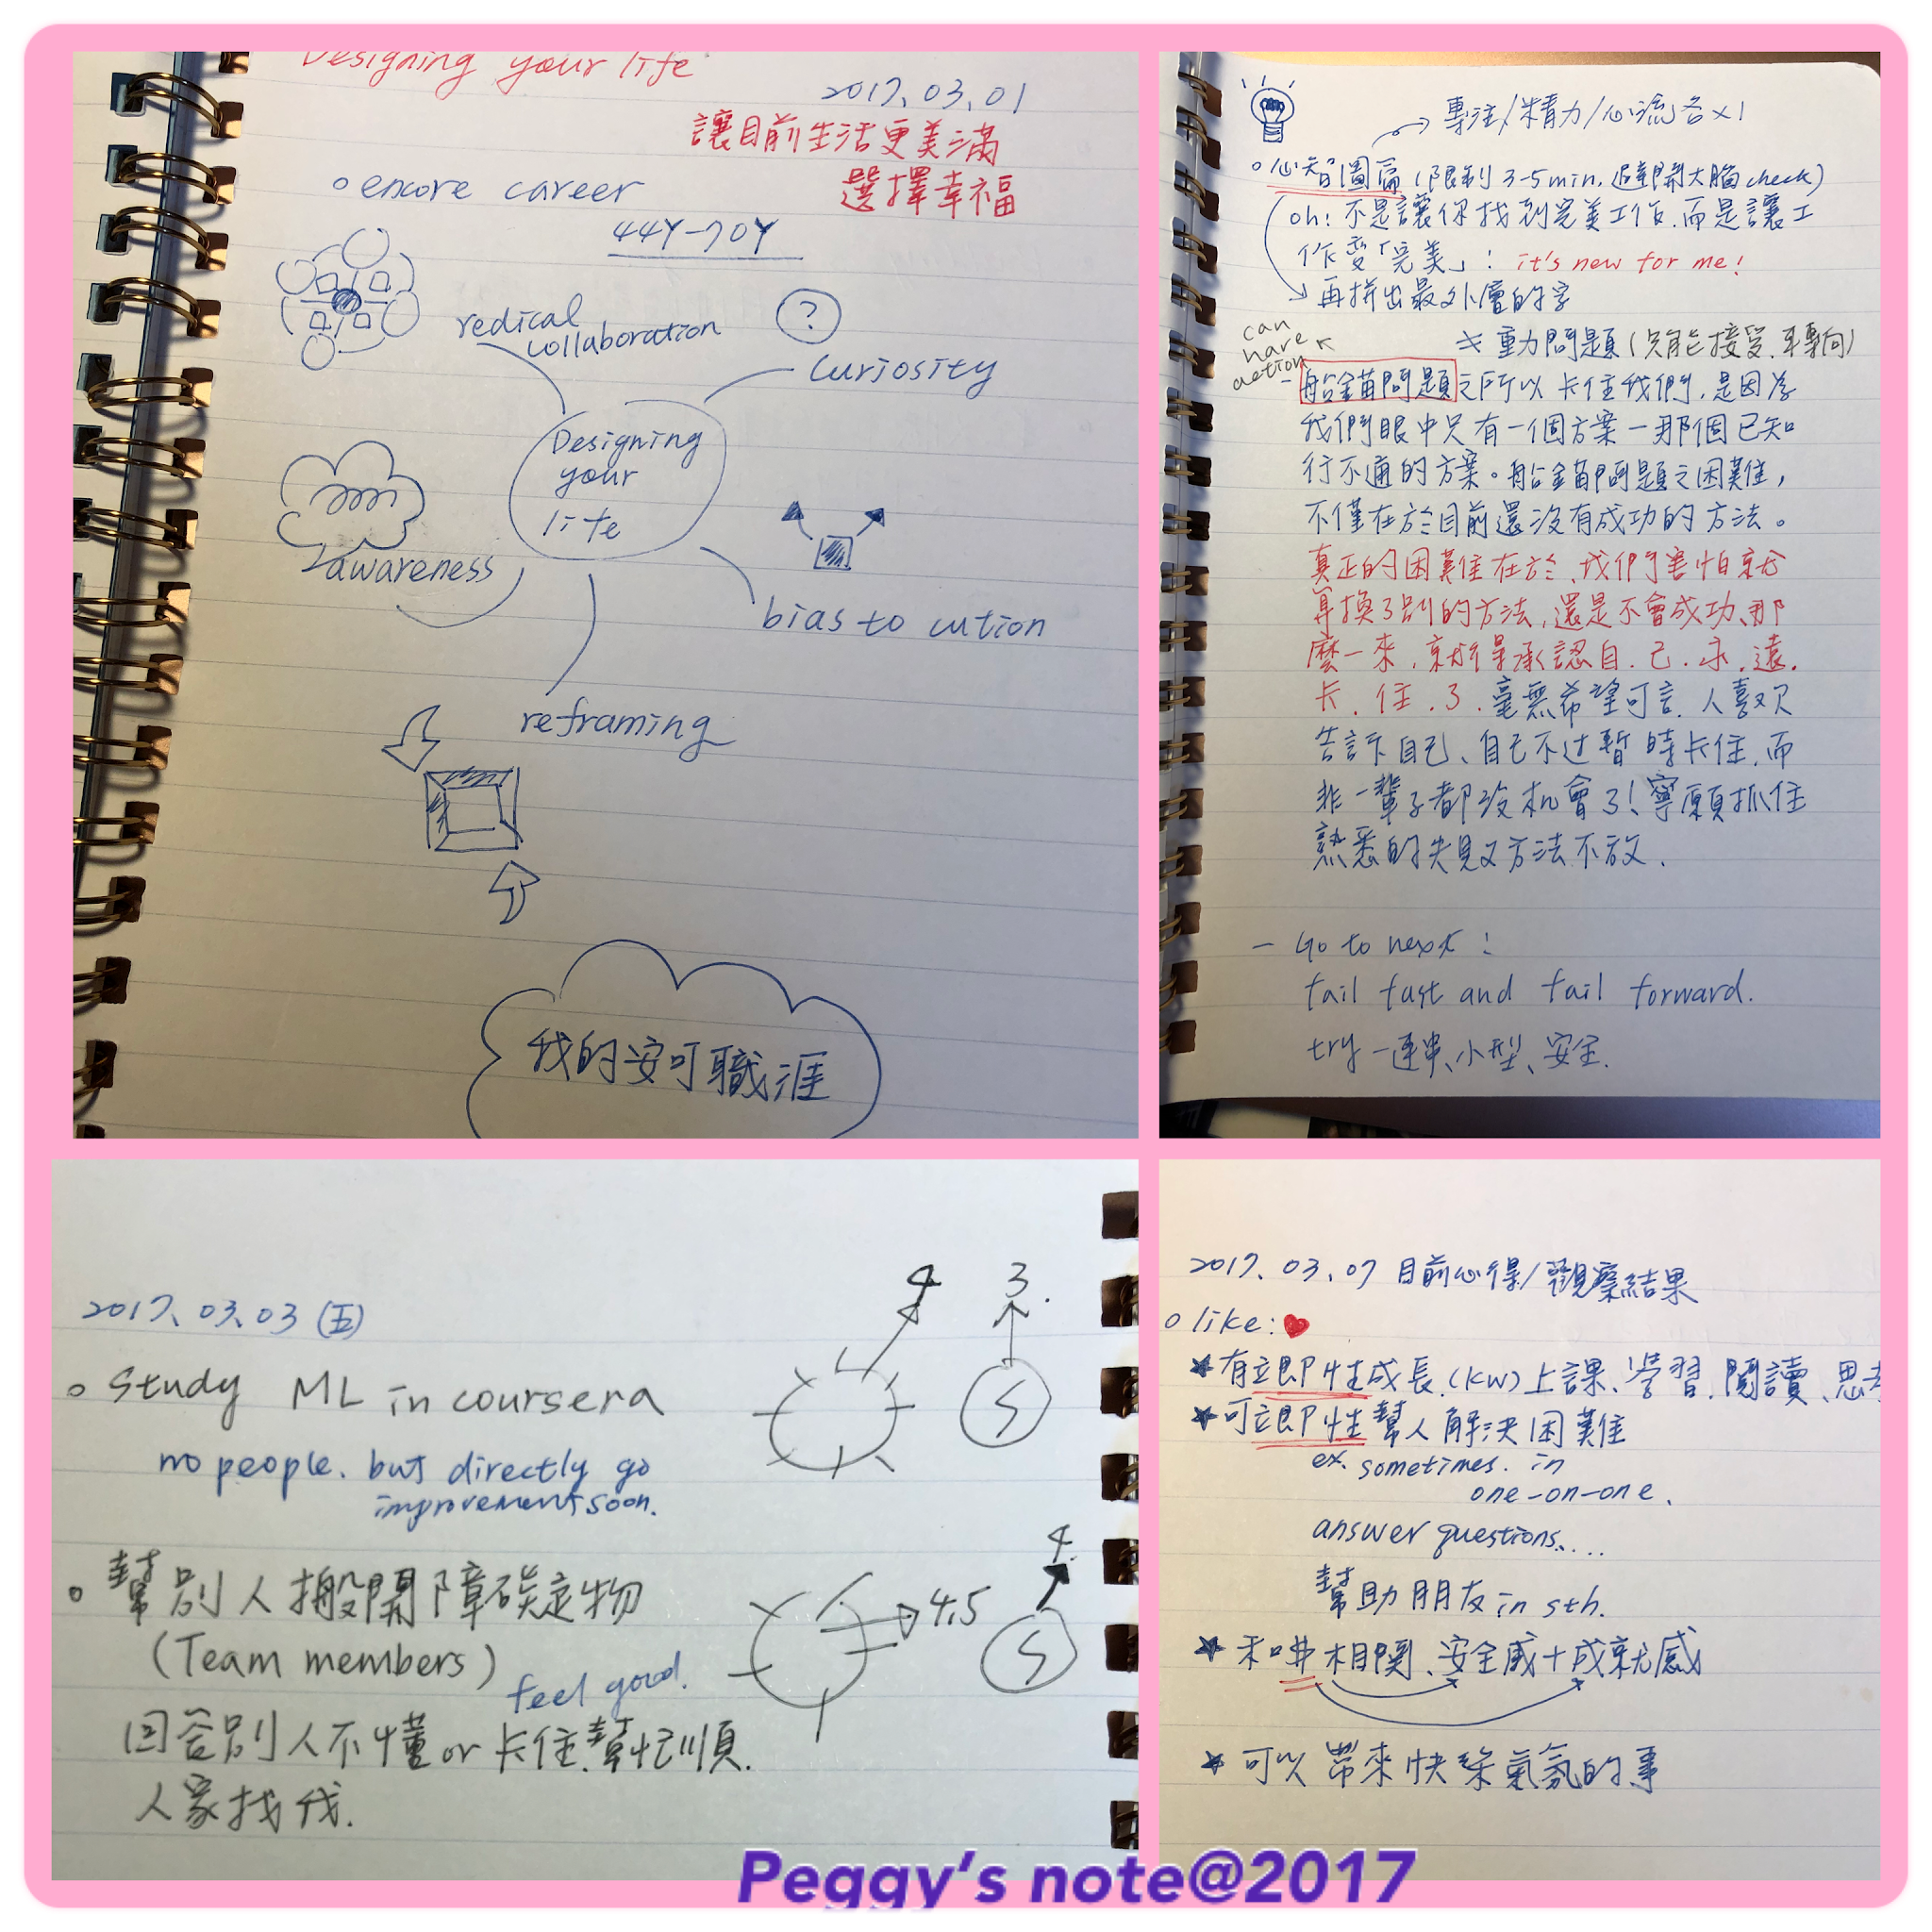 Designing your life
2017.03.01
讓目前生活更美滿
選擇幸福
encore career
44Y-70Y
redical
collaboration
?
curiosity
Designing
your
life
awareness
bias to cution
reframing
我的安可職涯
專注/精力/心流各x1
心智圖篇(限制3-5min,避開大腦check)
oh!不是讓你找到完美工作,而是讓工
作變「完美」! it's new for me!
再拼出最外層的字
重力問題(只能接受,再轉向)
can
have
action
船錨問題之所以卡住我們,是因為
我們眼中只有一個方案一那個已知
行不通的方案。船錨問題之困難,
不僅在於目前還沒有成功的方法。
真正的困難在於、我們害怕就
算換了別的方法,還是不會成功、那
麼一來,就得承認自.己.永.遠.
卡.住.了.毫無希望可言.人喜歡
告訴自己、自己不过暫時卡住,而
非一輩子都沒机會了!寧願抓住
熟悉的失敗方法不放.
- Go to next!
fail fast and fail forward.
try一連串、小型、安全.
2017.03.03(五)
4
3.
Study ML in coursera
S
no people. but directly go
improvement soon.
4.
幫別人搬開障礙物
4.5
S
(Team members)
feel good.
回答別人不懂or卡住.幫忙順.
人家找我.
2017.03.07 目前心得/觀察結果
like:
有立即性成長(KW)上課、學習.閱讀、思
可立即性幫人解決困難
ex. sometimes. in
one-on-one.
answer questions....
幫助朋友in sth.
和啡相關、安全感+成就感
可以帶來快樂氣氛的事
Peggy's note@2017